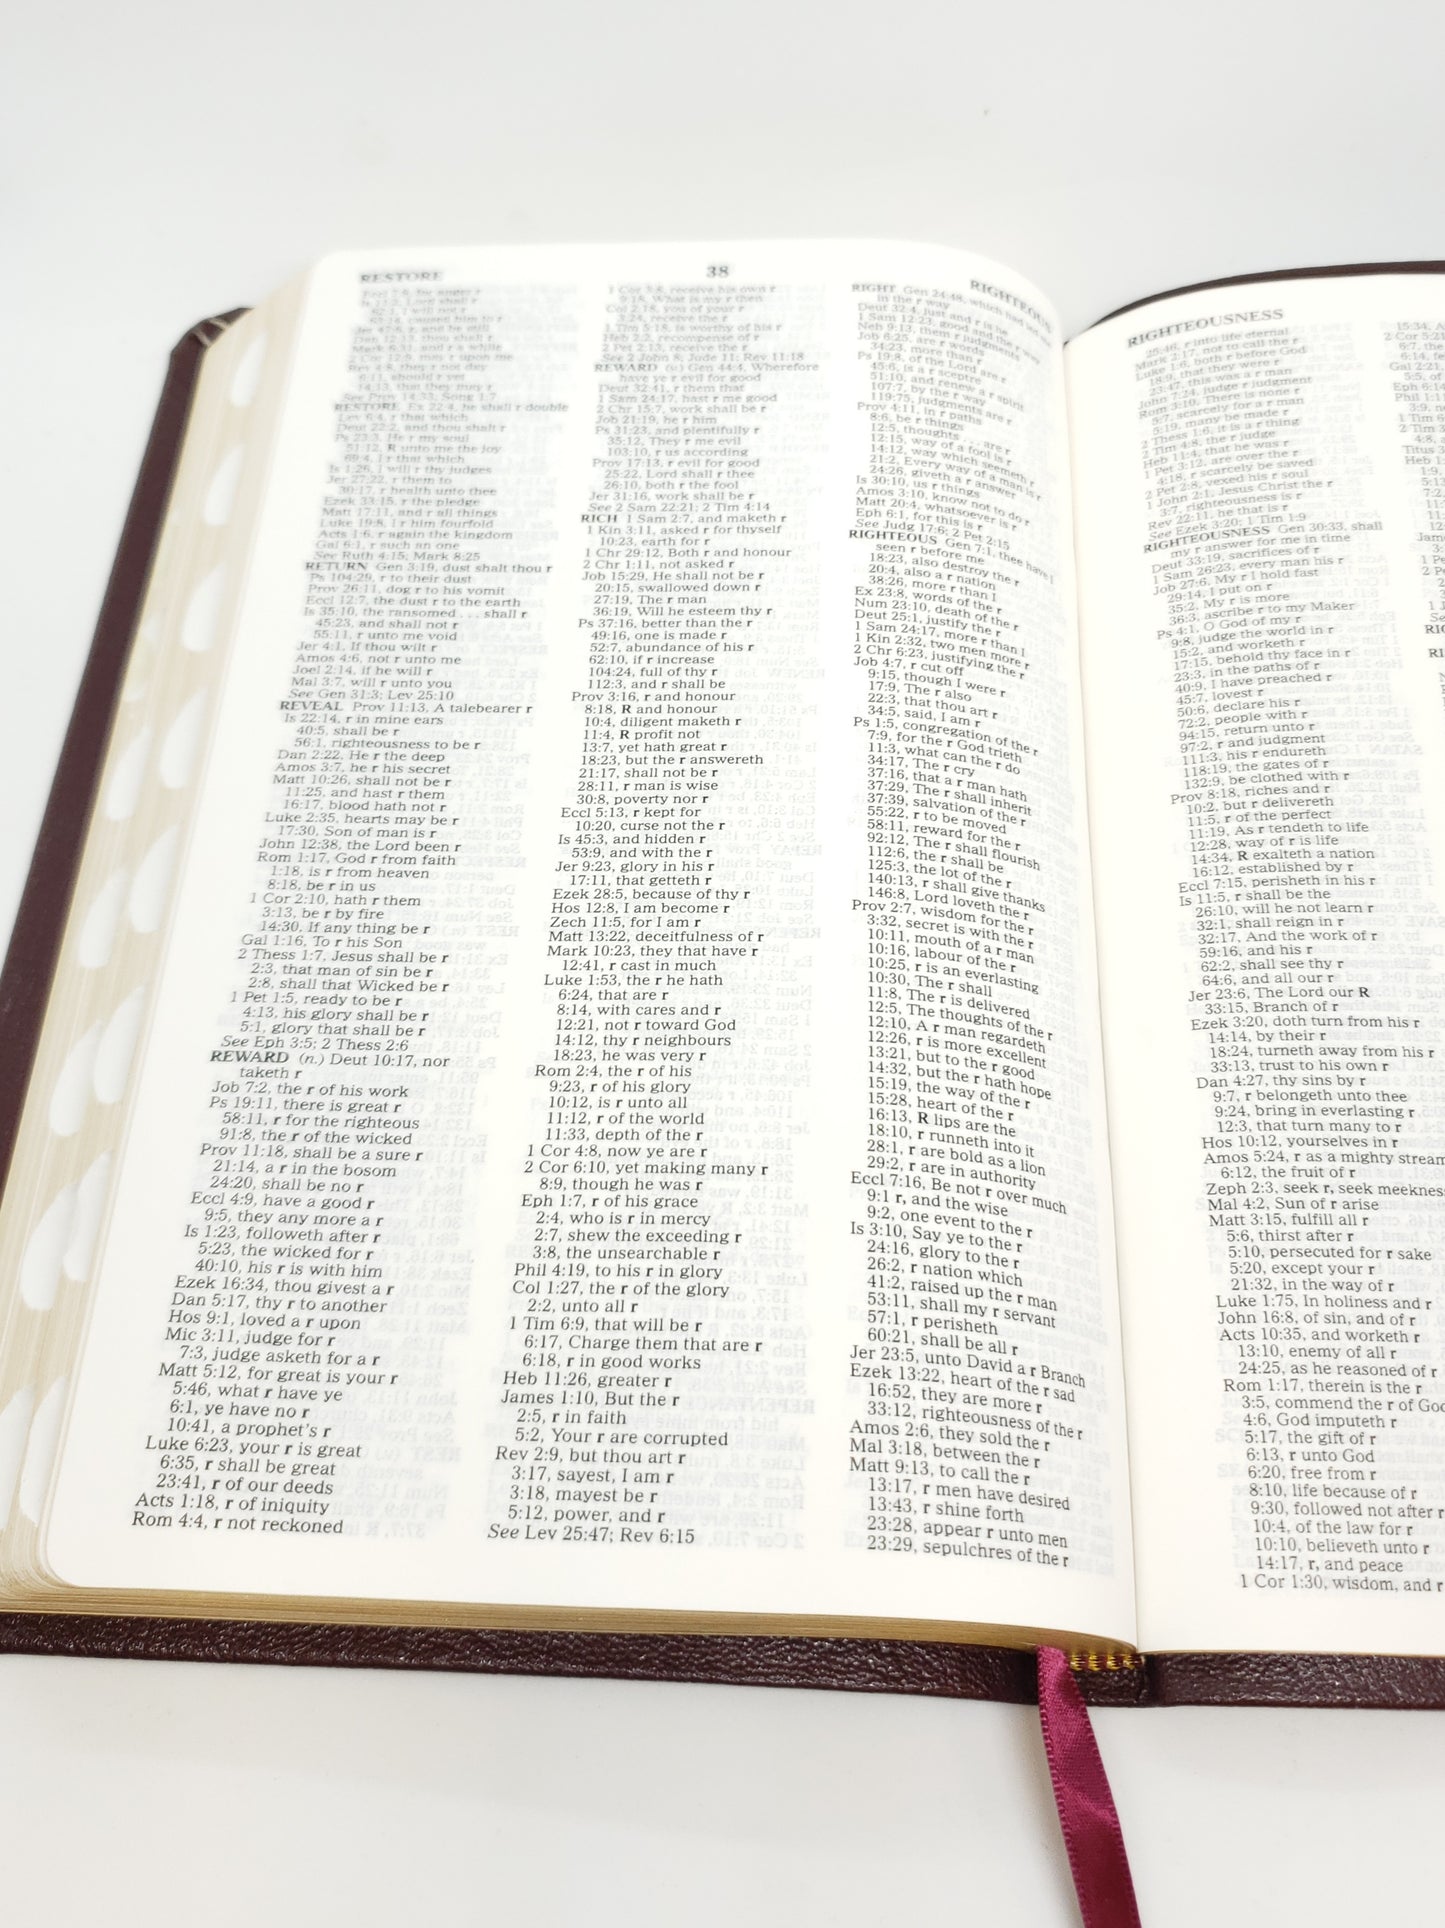 RESTORE
38
RIGHTEOUS
Eccl 7:9, for anger r
Is 11:2, Lord shall r
62:1, I will not r
63:14, caused him to r
Jer 47:6, r, and be still
Dan 12:13, thou shalt r
Mark 6:31, and r a while
2 Cor 12:9, may r upon me
Rev 4:8, they r not day
6:11, should r yet
14:13, that they may r
See Prov 14:33, Song 1:7
RESTORE Ex 22:4, he shall r double
Lev 6:4, r that which
Deut 22:2, and thou shalt r
Ps 23:3, He r my soul
51:12, R unto me the joy
69:4, I r that which
Is 1:26, I will r thy judges
Jer 27:22, r them to
30:17, r health unto thee
Ezek 33:15, r the pledge
Matt 17:11, and r all things
Luke 19:8, I r him fourfold
Acts 1:6, r again the kingdom
Gal 6:1, r such an one
See Ruth 4:15; Mark 8:25
RETURN Gen 3:19, dust shalt thou r
Ps 104:29, r to their dust
Prov 26:11, dog r to his vomit
Eccl 12:7, the dust r to the earth
Is 35:10, the ransomed . . . shall r
45:23, and shall not r
55:11, r unto me void
Jer 4:1, If thou wilt r
Amos 4:6, not r unto me
Joel 2:14, if he will r
Mal 3:7, will r unto you
See Gen 31:3; Lev 25:10
REVEAL Prov 11:13, A talebearer r
Is 22:14, r in mine ears
40:5, shall be r
56:1, righteousness to be r
Dan 2:22, He r the deep
Amos 3:7, he r his secret
Matt 10:26, shall not be r
11:25, and hast r them
16:17, blood hath not r
Luke 2:35, hearts may be r
17:30, Son of man is r
John 12:38, the Lord been r
Rom 1:17, God r from faith
1:18, is r from heaven
8:18, be r in us
1 Cor 2:10, hath r them
3:13, be r by fire
14:30, If any thing be r
Gal 1:16, To r his Son
2 Thess 1:7, Jesus shall be r
2:3, that man of sin be r
2:8, shall that Wicked be r
1 Pet 1:5, ready to be r
4:13, his glory shall be r
5:1, glory that shall be r
See Eph 3:5; 2 Thess 2:6
REWARD (n.) Deut 10:17, nor
taketh r
Job 7:2, the r of his work
Ps 19:11, there is great r
58:11, r for the righteous
91:8, the r of the wicked
Prov 11:18, shall be a sure r
21:14, a r in the bosom
24:20, shall be no r
Eccl 4:9, have a good r
9:5, they any more a r
Is 1:23, followeth after r
5:23, the wicked for r
40:10, his r is with him
Ezek 16:34, thou givest a r
Dan 5:17, thy r to another
Hos 9:1, loved a r upon
Mic 3:11, judge for r
7:3, judge asketh for a r
Matt 5:12, for great is your r
5:46, what r have ye
6:1, ye have no r
10:41, a prophet's r
Luke 6:23, your r is great
6:35, r shall be great
23:41, r of our deeds
Acts 1:18, r of iniquity
Rom 4:4, r not reckoned
1 Cor 3:8, receive his own r
9:18, What is my r then
Col 2:18, you of your r
3:24, receive the r
1 Tim 5:18, is worthy of his r
Heb 2:2, recompense of r
2 Pet 2:13, receive the r
See 2 John 8; Jude 11; Rev 11:18
REWARD (v.) Gen 44:4, Wherefore
have ye r evil for good
Deut 32:41, r them that
1 Sam 24:17, hast r me good
2 Chr 15:7, work shall be r
Job 21:19, he r him
Ps 31:23, and plentifully r
35:12, They r me evil
103:10, r us according
Prov 17:13, r evil for good
25:22, Lord shall r thee
26:10, both r the fool
Jer 31:16, work shall be r
See 2 Sam 22:21; 2 Tim 4:14
RICH 1 Sam 2:7, and maketh r
1 Kin 3:11, asked r for thyself
10:23, earth for r
1 Chr 29:12, Both r and honour
2 Chr 1:11, not asked r
Job 15:29, He shall not be r
20:15, swallowed down r
27:19, The r man
36:19, Will he esteem thy r
Ps 37:16, better than the r
49:16, one is made r
52:7, abundance of his r
62:10, if r increase
104:24, full of thy r
112:3, and r shall be
Prov 3:16, r and honour
8:18, R and honour
10:4, diligent maketh r
11:4, R profit not
13:7, yet hath great r
18:23, but the r answereth
21:17, shall not be r
28:11, r man is wise
30:8, poverty nor r
Eccl 5:13, r kept for
10:20, curse not the r
Is 45:3, and hidden r
53:9, and with the r
Jer 9:23, glory in his r
17:11, that getteth r
Ezek 28:5, because of thy r
Hos 12:8, I am become r
Zech 11:5, for I am r
Matt 13:22, deceitfulness of r
Mark 10:23, they that have r
12:41, r cast in much
Luke 1:53, the r he hath
6:24, that are r
8:14, with cares and r
12:21, not r toward God
14:12, thy r neighbours
18:23, he was very r
Rom 2:4, the r of his
9:23, r of his glory
10:12, is r unto all
11:12, r of the world
11:33, depth of the r
1 Cor 4:8, now ye are r
2 Cor 6:10, yet making many r
8:9, though he was r
Eph 1:7, r of his grace
2:4, who is r in mercy
2:7, shew the exceeding r
3:8, the unsearchable r
Phil 4:19, to his r in glory
Col 1:27, the r of the glory
2:2, unto all r
1 Tim 6:9, that will be r
6:17, Charge them that are r
6:18, r in good works
Heb 11:26, greater r
James 1:10, But the r
2:5, r in faith
5:2, Your r are corrupted
Rev 2:9, but thou art r
3:17, sayest, I am r
3:18, mayest be r
5:12, power, and r
See Lev 25:47; Rev 6:15
RIGHT Gen 24:48, which had led me
in the r way
Deut 32:4, just and r is he
1 Sam 12:23, good and the r way
Neh 9:13, them r judgments
Job 6:25, are r words
34:23, more than r
Ps 19:8, of the Lord are r
45:6, is a r sceptre
51:10, and renew a r spirit
107:7, by the r way
119:75, judgments are r
Prov 4:11, in r paths
8:6, be r things
12:5, thoughts . . . are r
12:15, way of a fool is r
14:12, way which seemeth r
21:2, Every way of a man is r
24:26, giveth a r answer
Is 30:10, us r things
Amos 3:10, know not to do r
Matt 20:4, whatsoever is r
Eph 6:1, for this is r
See Judg 17:6; 2 Pet 2:15
RIGHTEOUS Gen 7:1, thee have I
seen r before me
18:23, also destroy the r
20:4, also a r nation
38:26, more r than I
Ex 23:8, words of the r
Num 23:10, death of the r
Deut 25:1, justify the r
1 Sam 24:17, more r than I
1 Kin 2:32, two men more r
2 Chr 6:23, justifying the r
Job 4:7, r cut off
9:15, though I were r
17:9, The r also
22:3, that thou art r
34:5, said, I am r
Ps 1:5, congregation of the r
7:9, for the r God trieth
11:3, what can the r do
34:17, The r cry
37:16, that a r man hath
37:29, The r shall inherit
37:39, salvation of the r
55:22, r to be moved
58:11, reward for the r
92:12, The r shall flourish
112:6, the r shall be
125:3, the lot of the r
140:13, r shall give thanks
146:8, Lord loveth the r
Prov 2:7, wisdom for the r
3:32, secret is with the r
10:11, mouth of a r man
10:16, labour of the r
10:25, r is an everlasting
10:30, The r shall
11:8, The r is delivered
12:5, The thoughts of the r
12:10, A r man regardeth
12:26, r is more excellent
13:21, but to the r good
14:32, but the r hath hope
15:19, the way of the r
15:28, heart of the r
16:13, R lips are the
18:10, r runneth into it
28:1, r are bold as a lion
29:2, r are in authority
Eccl 7:16, Be not r over much
9:1 r, and the wise
9:2, one event to the r
Is 3:10, Say ye to the r
24:16, glory to the r
26:2, r nation which
41:2, raised up the r man
53:11, shall my r servant
57:1, r perisheth
60:21, shall be all r
Jer 23:5, unto David a r Branch
Ezek 13:22, heart of the r sad
16:52, they are more r
33:12, righteousness of the r
Amos 2:6, they sold the r
Mal 3:18, between the r
Matt 9:13, to call the r
13:17, r men have desired
13:43, r shine forth
23:28, appear r unto men
23:29, sepulchres of the r
RIGHTEOUSNESS
25:46, r into life eternal
Mark 2:17, not to call the r
Luke 1:6, both r before God
18:9, that they were r
23:47, this was a r man
John 7:24, judge r judgment
Rom 3:10, There is none r
5:7, scarcely for a r man
5:19, many be made r
2 Thess 1:6, it is a r thing
2 Tim 4:8, the r judge
Heb 11:4, that he was r
1 Pet 3:12, are over the r
4:18, r scarcely be saved
2 Pet 2:8, vexed his r soul
1 John 2:1, Jesus Christ the r
3:7, righteousness is r
Rev 22:11, he that is r
See Ezek 3:20; 1 Tim 1:9
RIGHTEOUSNESS Gen 30:33, shall
my r answer for me in time
Deut 33:19, sacrifices of r
1 Sam 26:23, every man his r
Job 27:6, My r I hold fast
29:14, I put on r
35:2, My r is more
36:3, ascribe r to my Maker
Ps 4:1, O God of my r
9:8, judge the world in r
15:2, and worketh r
17:15, behold thy face in r
23:3, in the paths of r
40:9, I have preached r
45:7, lovest r
50:6, declare his r
72:2, people with r
94:15, return unto r
97:2, r and judgment
111:3, his r endureth
118:19, the gates of r
132:9, be clothed with r
Prov 8:18, riches and r
10:2, but r delivereth
11:5, r of the perfect
11:19, As r tendeth to life
12:28, way of r is life
14:34, R exalteth a nation
16:12, established by r
Eccl 7:15, perisheth in his r
Is 11:5, r shall be the
26:10, will he not learn r
32:1, shall reign in r
32:17, And the work of r
59:16, and his r
62:2, shall see thy r
64:6, and all our r
Jer 23:6, The Lord our R
33:15, Branch of r
Ezek 3:20, doth turn from his r
14:14, by their r
18:24, turneth away from his r
33:13, trust to his own r
Dan 4:27, thy sins by r
9:7, r belongeth unto thee
9:24, bring in everlasting r
12:3, that turn many to r
Hos 10:12, yourselves in r
Amos 5:24, r as a mighty stream
6:12, the fruit of r
Zeph 2:3, seek r, seek meekness
Mal 4:2, Sun of r arise
Matt 3:15, fulfill all r
5:6, thirst after r
5:10, persecuted for r sake
5:20, except your r
21:32, in the way of r
Luke 1:75, In holiness and r
John 16:8, of sin, and of r
Acts 10:35, and worketh r
13:10, enemy of all r
24:25, as he reasoned of r
Rom 1:17, therein is the r
3:5, commend the r of God
4:6, God imputeth r
5:17, the gift of r
6:13, r unto God
6:20, free from r
8:10, life because of r
9:30, followed not after r
10:4, of the law for r
10:10, believeth unto r
14:17, r, and peace
1 Cor 1:30, wisdom, and r